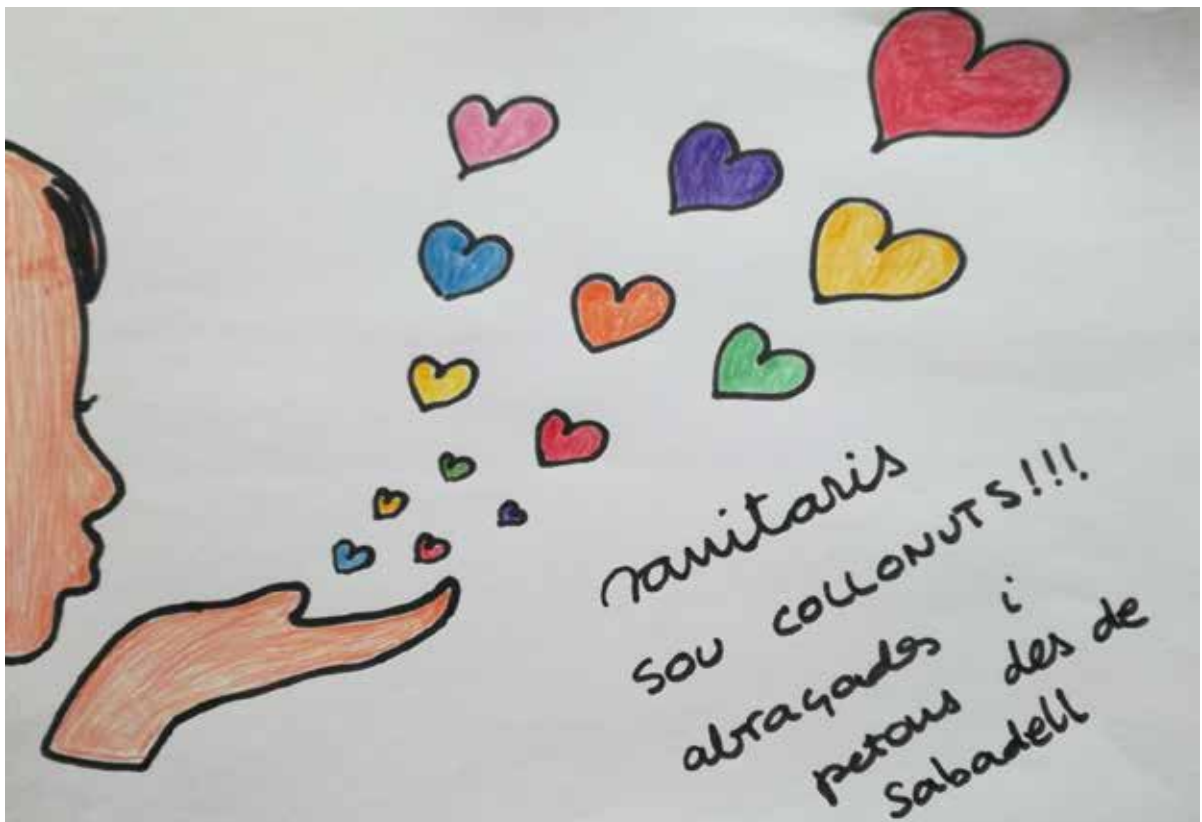 sanitaris
sou COLLONUTS!!!
abraçades i
petons des de
Sabadell